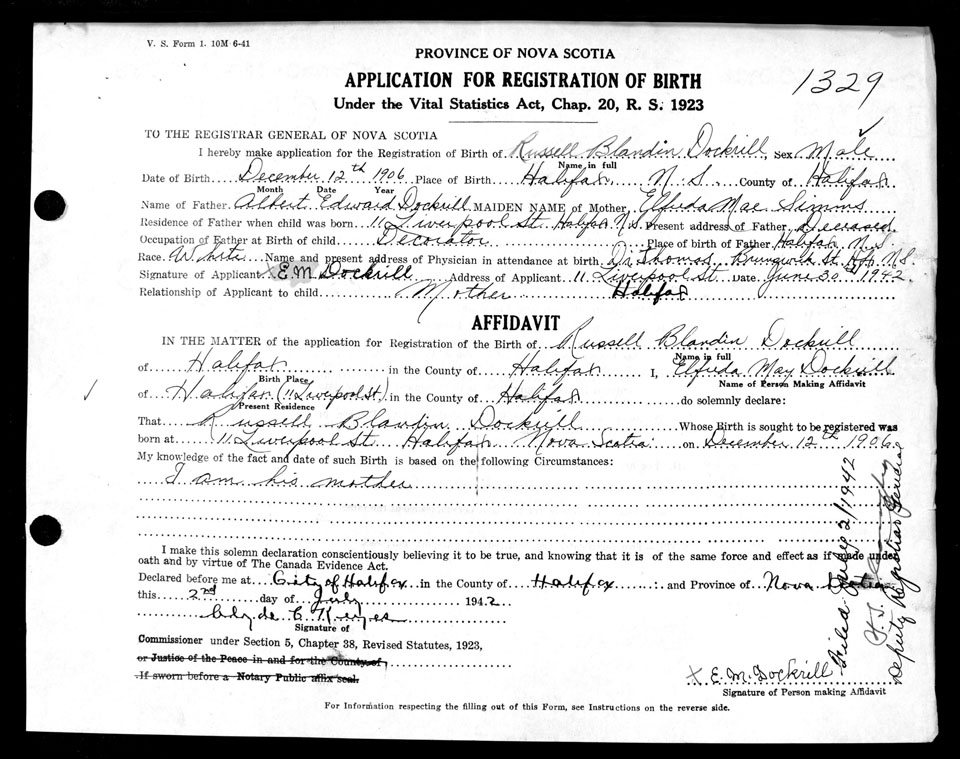 V. S. Form 1. 10M 6-41
PROVINCE OF NOVA SCOTIA
1329
APPLICATION FOR REGISTRATION OF BIRTH
Under the Vital Statistics Act, Chap. 20, R. S. 1923
TO THE REGISTRAR GENERAL OF NOVA SCOTIA
I hereby make application for the Registration of Birth of Russell Blandin Dockrill, Sex Male
Name in full
Date of Birth December 12th 1906 Place of Birth Halifax N.S. County of Halifax
Month Date Year
Name of Father Albert Edward Dockrill MAIDEN NAME of Mother Elfreda Mae Simms
Residence of Father when child was born 11 Liverpool St. Halifax N.S. Present address of Father Deceased
Occupation of Father at Birth of child Decorator Place of birth of Father Halifax N.S.
Race White Name and present address of Physician in attendance at birth Dr. Thomas Brunswick St. Hfx N.S.
Signature of Applicant x E M Dockrill Address of Applicant 11 Liverpool St. Date June 30 1942.
Relationship of Applicant to child Mother Halifax
AFFIDAVIT
IN THE MATTER of the application for Registration of the Birth of Russell Blandin Dockrill
Name in full
of Halifax in the County of Halifax I, Elfreda May Dockrill
Birth Place Name of Person Making Affidavit
of Halifax (11 Liverpool St.) in the County of Halifax do solemnly declare:
Present Residence
That Russell Blandin Dockrill Whose Birth is sought to be registered was
born at 11 Liverpool St. Halifax Nova Scotia on December 12th 1906
My knowledge of the fact and date of such Birth is based on the following Circumstances:
I am his mother
I make this solemn declaration conscientiously believing it to be true, and knowing that it is of the same force and effect as if made under
oath and by virtue of The Canada Evidence Act.
Declared before me at City of Halifax in the County of Halifax and Province of Nova Scotia
this 2nd day of July 1942.
Clyde C Keyes
Signature of
Commissioner under Section 5, Chapter 38, Revised Statutes, 1923,
or Justice of the Peace in and for the County of
If sworn before a Notary Public affix seal.
x E. M. Dockrill
Signature of Person making Affidavit
For Information respecting the filling out of this Form, see Instructions on the reverse side.
Filed July 2/1942
Deputy Registrar General